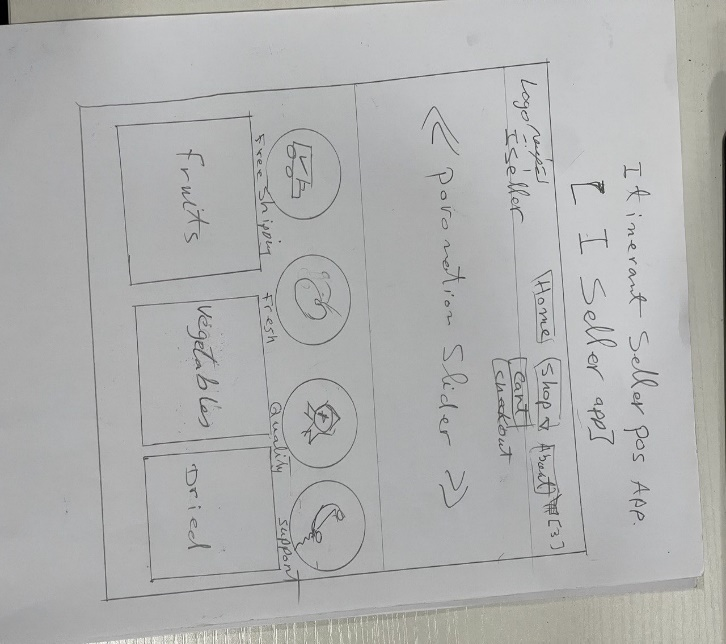 Itinerant Seller pos App.
[ I Seller app]
Logo
I Seller
Home Shop About [3]
Cart
chekout
<< poromotion Slider >>
Free Shipping
Fresh
Quality
support
fruits
Vegetables
Dried